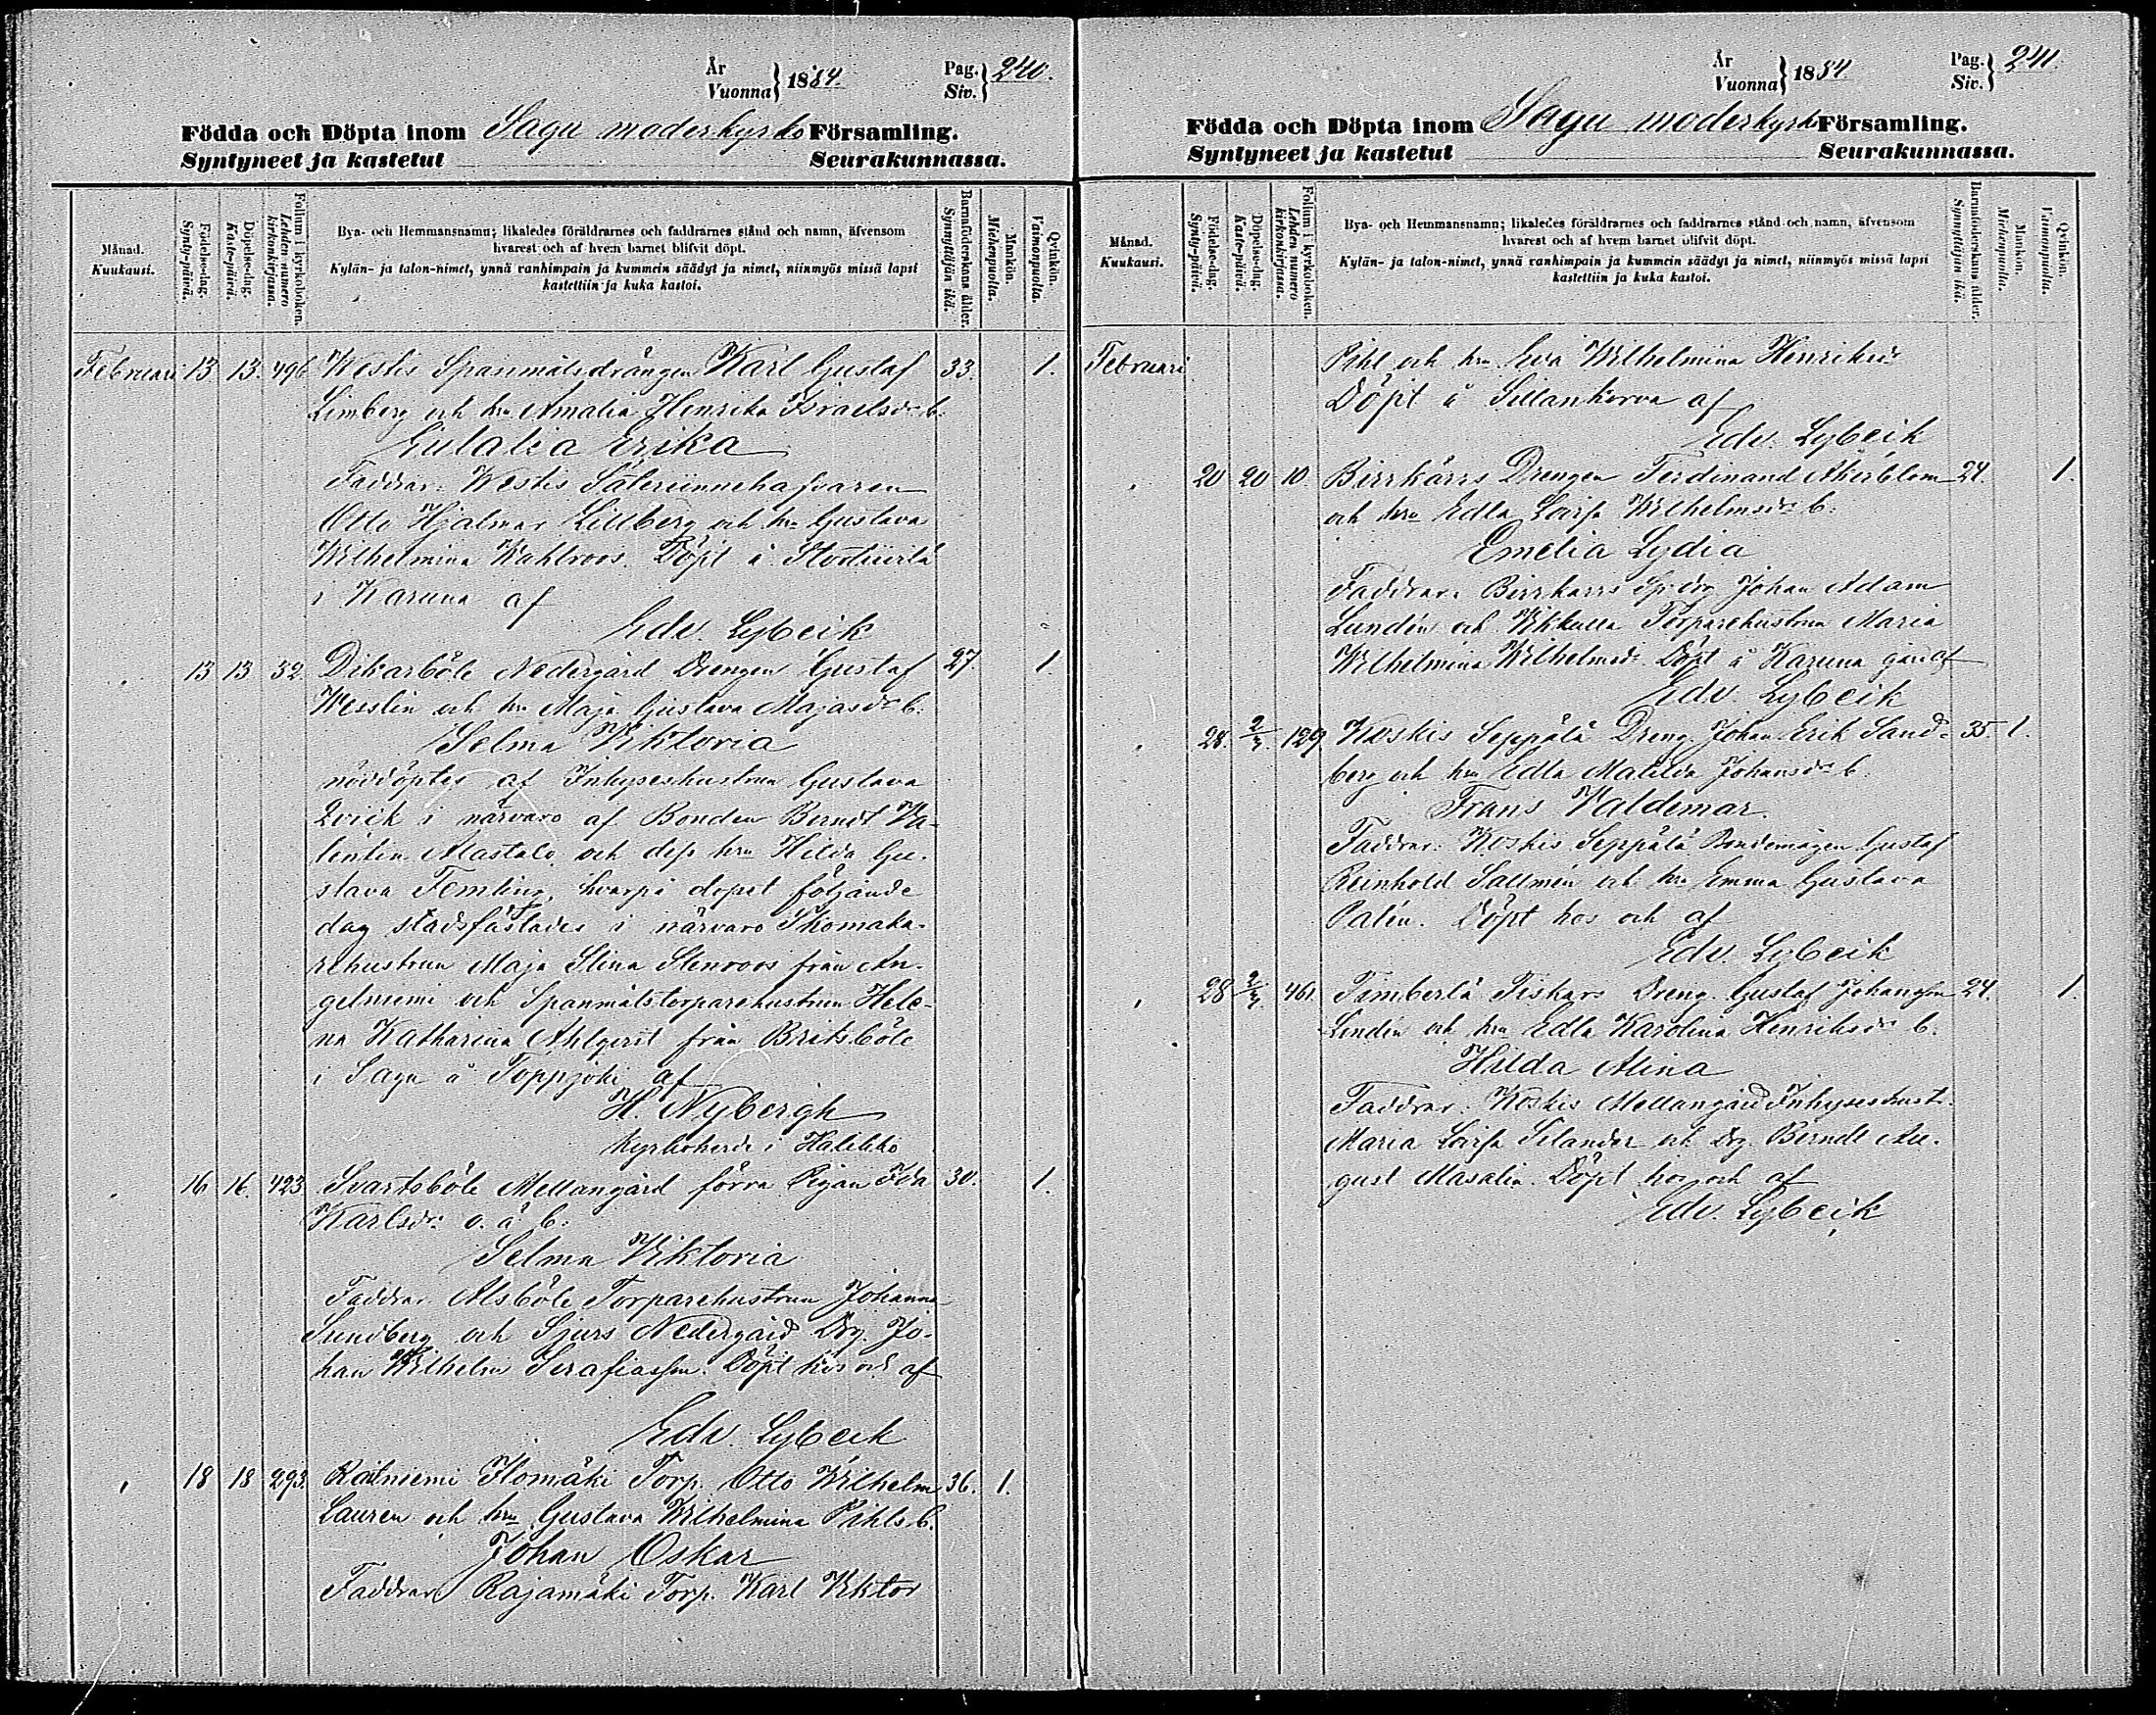 År
Vuonna } 1884.
Pag.
Siv. } 240.
Födda och Döpta inom Sagu moderkyrko Församling.
Syntyneet ja kastetut Seurakunnassa.
Månad.
Kuukausi.
Födelse-dag.
Synty-päivä.
Döpelse-dag.
Kaste-päivä.
Folium i kyrkoboken.
Lehden numero kirkonkirjassa.
Bya- och Hemmansnamn; likaledes föräldrarnes och faddrarnes stånd och namn, äfvensom
hvarest och af hvem barnet blifvit döpt.
Kylän- ja talon-nimet, ynnä vanhimpain ja kummein säädyt ja nimet, niinmyös missä lapsi
kastettiin ja kuka kastoi.
Barnaföderskans ålder.
Synnyttäjän ikä.
Mankön.
Miehenpuolta.
Qvinkön.
Vaimonpuolta.
Februari 13 13. 496 Westis Spanmålsdrängen Karl Gustaf 33. 1.
Limberg och hru Amalia Henrika Israelsdr b.
Eulalia Erika
Faddrar: Westis Säteriinnehafvaren
Otto Hjalmar Lillberg och hru Gustava
Wilhelmina Wahlroos. Döpt å
i Karuna af
Edv. Lybeck
13 13 32. Dikarböle Nedergård Drengen Gustaf 27. 1.
Wesslin och hru Maja Gustava Majasdr b.
Selma Viktoria
nöddöptes af Inhyseshustrun Gustava
Qvick i närvaro af Bonden Berndt Va-
lentin Alastalo och dess hru Hilda Gu-
stava Femling, hvarpå dopet följande
dag stadsfästades i närvaro Skomaka-
rehustrun Maja Stina Stenroos från An-
gelniemi och Spanmålstorparehustrun Hele-
na Katharina Ahlqvist från Britsböle
i Sagu å Toppjoki af
H. Nybergh
Kyrkoherde i Halikko
16 16. 423 Svartsböle Mellangård förra Pigan Ida 30. 1.
Karlsdr: o. ä. b.
Selma Viktoria
Faddrar. Alsböle Torparehustrun Johanna
Sundberg och Sjurs Nedergård Drg. Jo-
han Wilhelm Serafiasson. Döpt hos och af
Edv. Lybeck
18 18 293. Raitniemi Flomäki Torp. Otto Wilhelm 36. 1.
Lauren och hru Gustava Wilhelmina Pihls b.
Johan Oskar
Faddrar Rajamäki Torp. Karl Viktor
År
Vuonna } 1884
Pag.
Siv. } 241
Födda och Döpta inom Sagu moderkyrko Församling.
Syntyneet ja kastetut Seurakunnassa.
Månad.
Kuukausi.
Födelse-dag.
Synty-päivä.
Döpelse-dag.
Kaste-päivä.
Folium i kyrkoboken.
Lehden numero kirkonkirjassa.
Bya- och Hemmansnamn; likaledes föräldrarnes och faddrarnes stånd och namn, äfvensom
hvarest och af hvem barnet blifvit döpt.
Kylän- ja talon-nimet, ynnä vanhimpain ja kummein säädyt ja nimet, niinmyös missä lapsi
kastettiin ja kuka kastoi.
Barnaföderskans ålder.
Synnyttäjän ikä.
Mankön.
Miehenpuolta.
Qvinkön.
Vaimonpuolta.
Februari Pihl och hru Eva Wilhelmina Henriksdr
Döpt å Sillankorva af
Edv. Lybeck
20 20 10. Birrkärrs Drengen Ferdinand Åkerblom 24. 1.
och hru Edla Lovisa Wilhelmsdr b.
Emelia Lydia
Faddrar: Birrkärrs Sp.drg Johan Adam
Lundén och Wikkulla Torparehustrun Maria
Wilhelmina Wilhelmsdr Döpt å Karuna gård af
Edv. Lybeck
28. 2/3. 129 Koskis Seppälä Dreng. Johan Erik Sand- 35. 1.
berg och hru Edla Matilda Johansdr b.
Frans Valdemar.
Faddrar: Koskis Seppälä Bondemågen Gustaf
Reinhold Sallmén och hru Emma Gustava
Palén. Döpt hos och af
Edv. Lybeck
28 2/3. 461. Timberlä Piskars Dreng. Gustaf Johansson 24. 1.
Lindén och hru Edla Karolina Henriksdr b.
Hilda Alina
Faddrar: Koskis Mellangård Inhyseshustr.
Maria Lovisa Selander och Drg. Berndt Au-
gust Masalin. Döpt hos och af
Edv. Lybeck